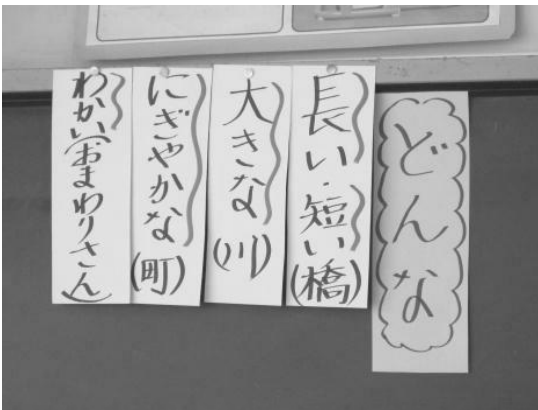 どんな
長い・短い(橋)
大きな(川)
にぎやかな(町)
わかい(おまわりさん)